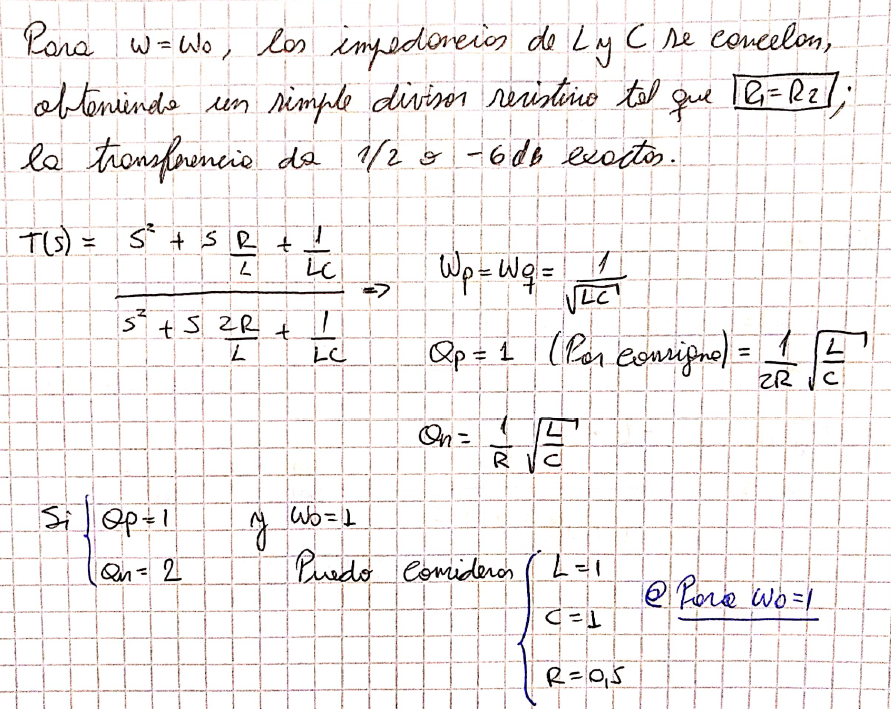 Para w=wo, las impedancias de L y C se cancelan,
obteniendo un simple divisor resistivo tal que R1=R2;
la transferencia da 1/2 o -6db exactos.
T(s) = (s² + s R/L + 1/LC) / (s² + s 2R/L + 1/LC) => Wp=Wq= 1/√LC
Qp=1 (Por consigna) = 1/2R √L/C
Qn= 1/R √L/C
Si { Qp=1 y Wo=1
Qn=2 Puedo considerar { L=1
C=1
R=0,5
@ Para Wo=1